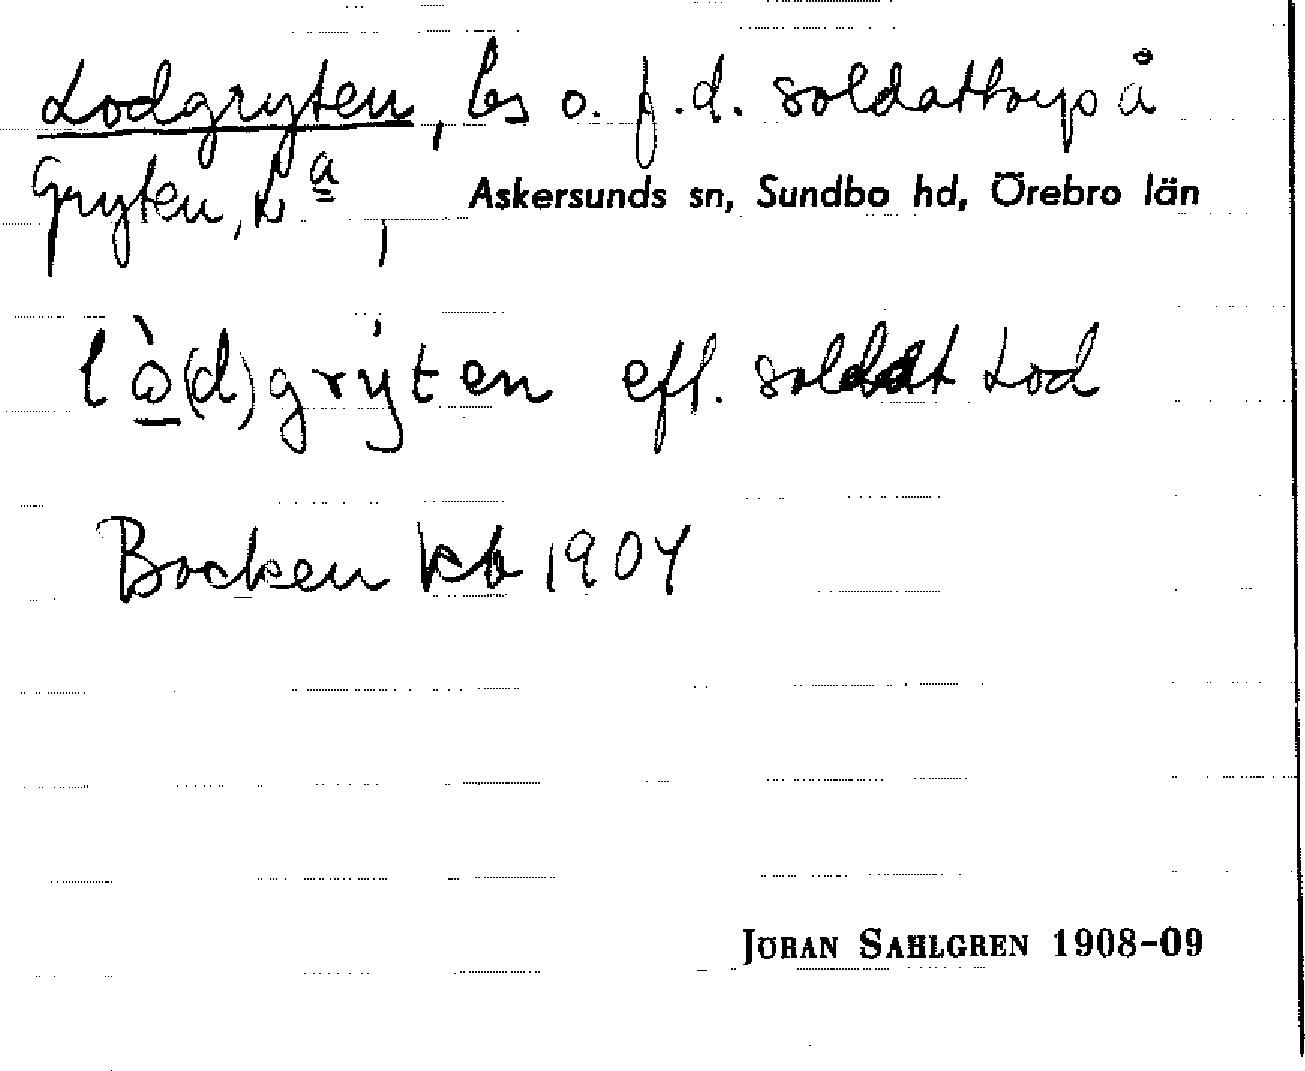 Lodgryten, ls o. f.d. soldattorp å
Gryten, La,
Askersunds sn, Sundbo hd, Örebro län
lò̲(d)grýten eft. soldat Lod
Bocken kb 1904
JÖRAN SAHLGREN 1908-09